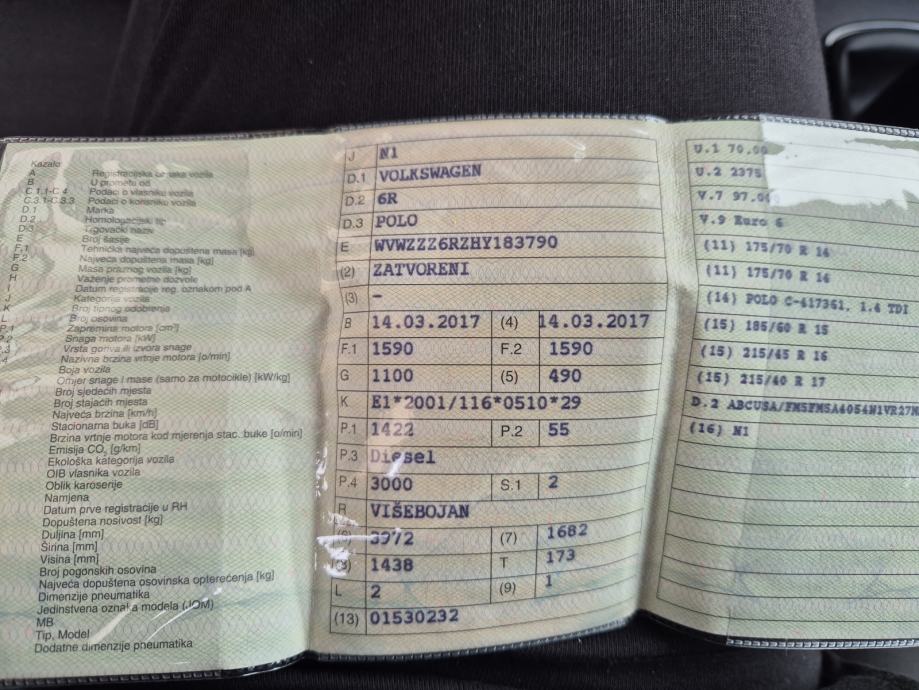 Kazalo
A Registracijska oznaka vozila
B U prometu od
C.1.1-C.4 Podaci o vlasniku vozila
C.3.1-C.3.3 Podaci o korisniku vozila
D.1 Marka
D.2 Homologacijski tip
D.3 Trgovački naziv
E Broj šasije
F.1 Tehnička najveća dopuštena masa [kg]
F.2 Najveća dopuštena masa [kg]
G Masa praznog vozila [kg]
H Važenje prometne dozvole
I Datum registracije reg. oznakom pod A
J Kategorija vozila
K Broj tipnog odobrenja
L Broj osovina
P.1 Zapremina motora [cm³]
P.2 Snaga motora [kW]
P.3 Vrsta goriva ili izvora snage
Nazivna brzina vrtnje motora [o/min]
Boja vozila
Omjer snage i mase (samo za motocikle) [kW/kg]
Broj sjedećih mjesta
Broj stajaćih mjesta
Najveća brzina [km/h]
Stacionarna buka [dB]
Brzina vrtnje motora kod mjerenja stac. buke [o/min]
Emisija CO₂ [g/km]
Ekološka kategorija vozila
OIB vlasnika vozila
Oblik karoserije
Namjena
Datum prve registracije u RH
Dopuštena nosivost [kg]
Duljina [mm]
Širina [mm]
Visina [mm]
Broj pogonskih osovina
Najveća dopuštena osovinska opterećenja [kg]
Dimenzije pneumatika
Jedinstvena oznaka modela (JOM)
MB
Tip, Model
Dodatne dimenzije pneumatika
J N1
D.1 VOLKSWAGEN
D.2 6R
D.3 POLO
E WVWZZZ6RZHY183790
(2) ZATVORENI
(3) –
B 14.03.2017 (4) 14.03.2017
F.1 1590 F.2 1590
G 1100 (5) 490
K E1*2001/116*0510*29
P.1 1422 P.2 55
P.3 Diesel
P.4 3000 S.1 2
R VIŠEBOJAN
(6) 3972 (7) 1682
(8) 1438 T 173
L 2 (9) 1
(13) 01530232
U.1 70.00
U.2 2375
V.7 97.0
V.9 Euro 6
(11) 175/70 R 14
(11) 175/70 R 14
(14) POLO C-417361, 1.4 TDI
(15) 185/60 R 15
(15) 215/45 R 16
(15) 215/40 R 17
D.2 ABCUSA/FM5FM5A4054N1VR27M
(16) N1